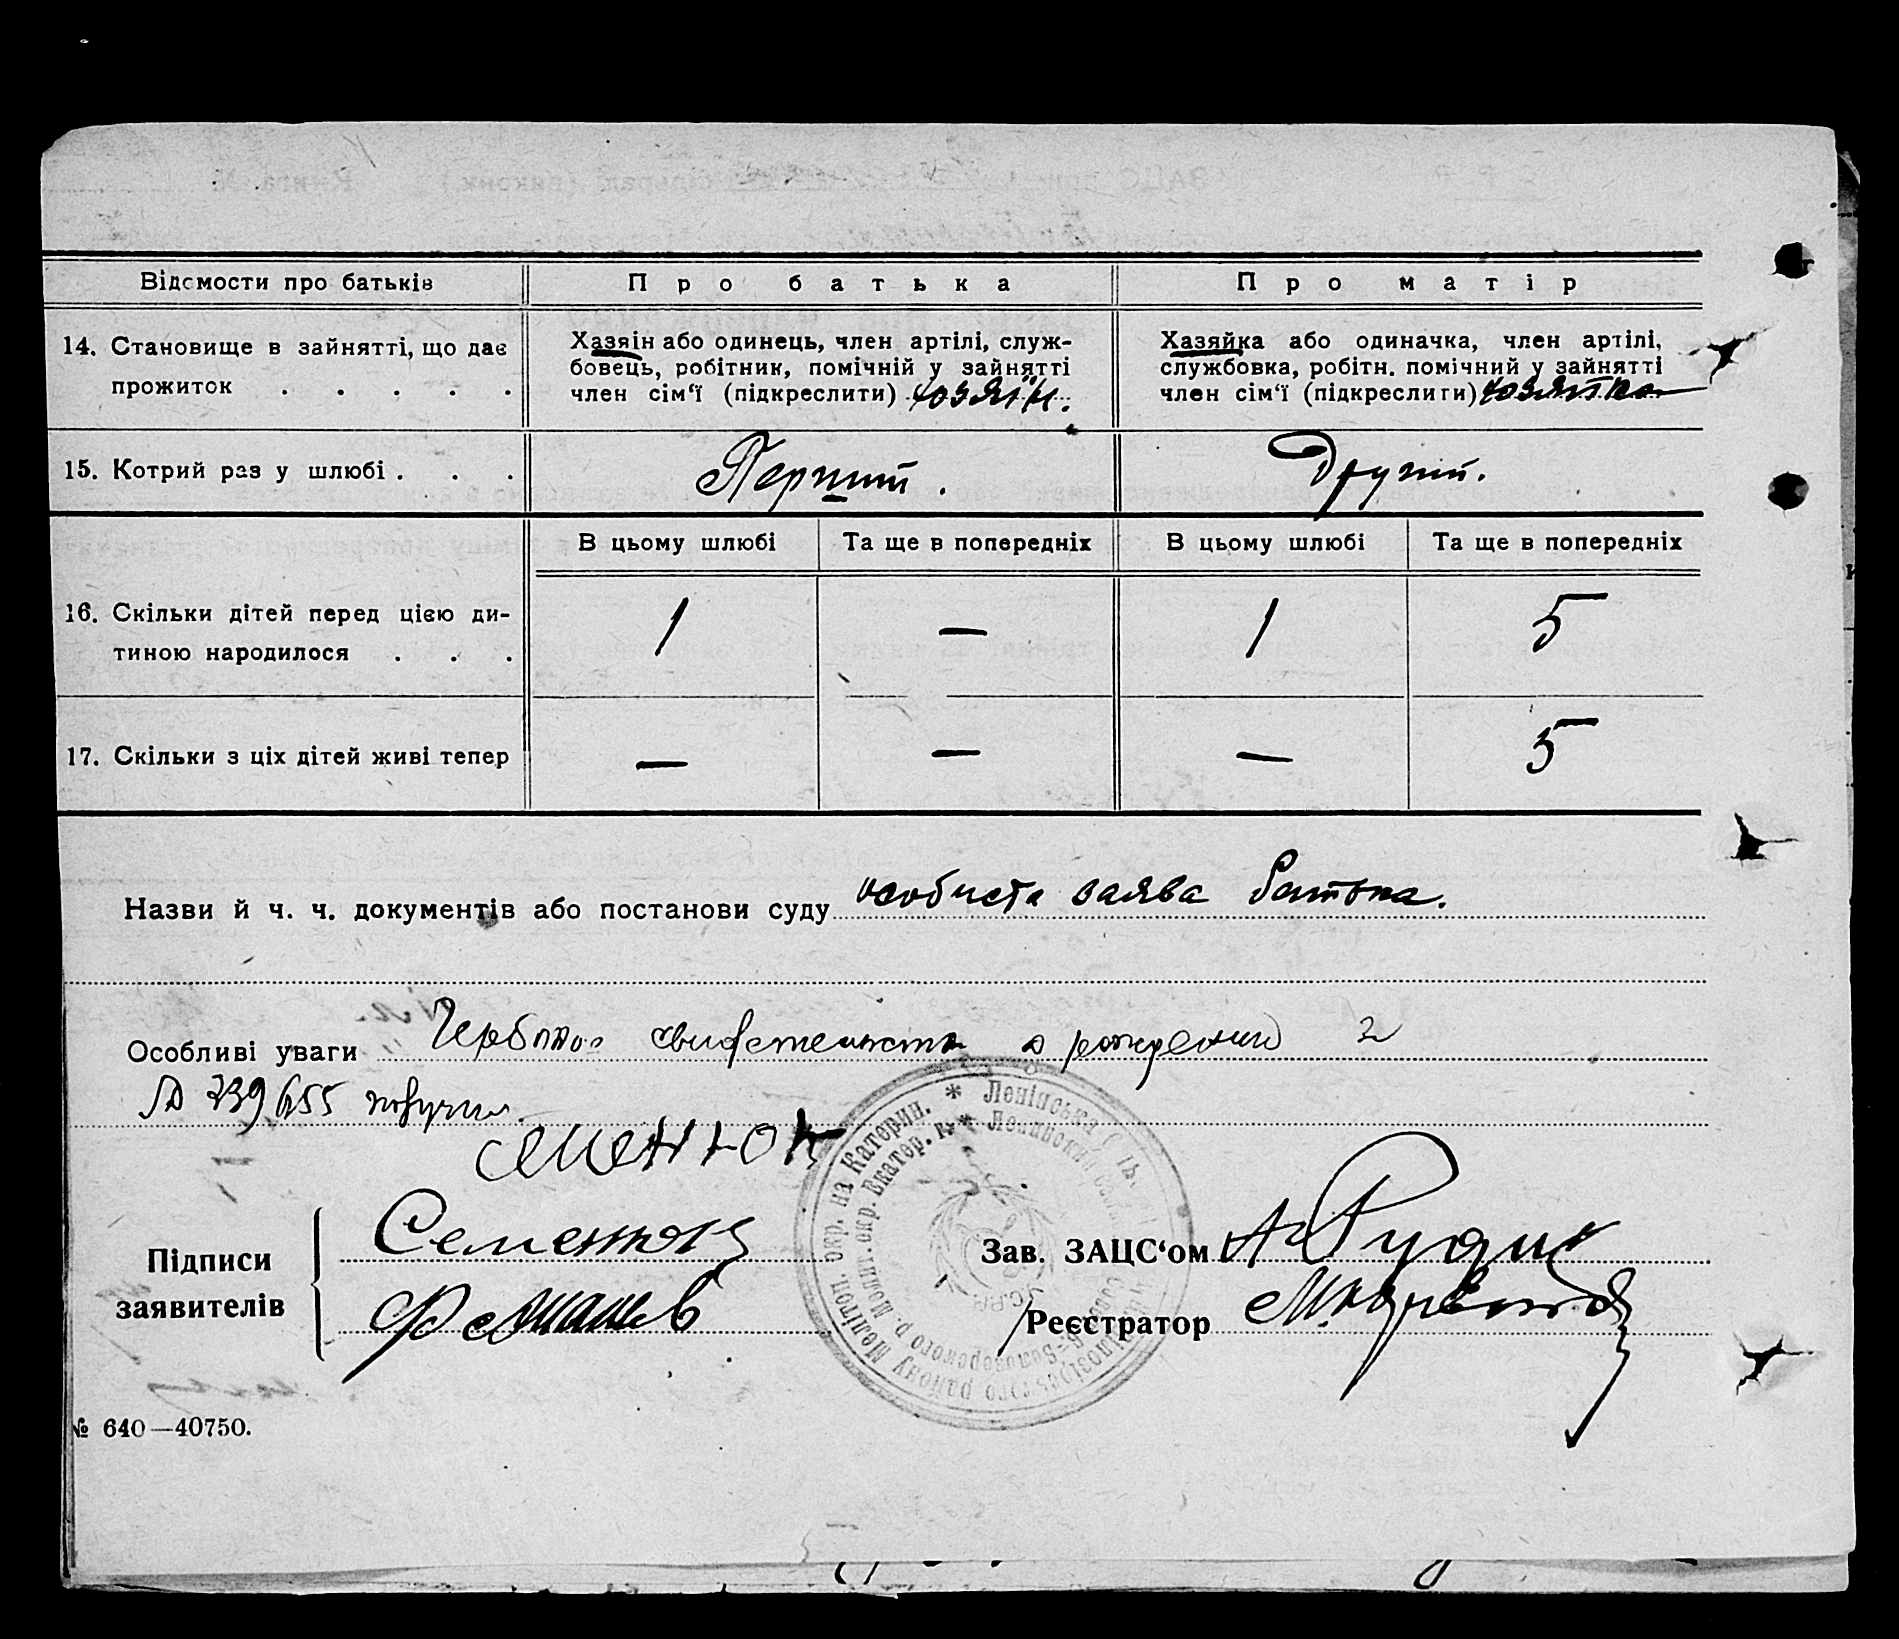 Відомости про батьків
Про батька
Про матір
14. Становище в зайнятті, що дає
прожиток . . . . .
Хазяїн або одинець, член артілі, служ-
бовець, робітник, помічній у зайнятті
член сім‘ї (підкреслити) хозяїн.
Хазяйка або одиначка, член артілі,
службовка, робітн. помічний у зайнятті
член сім‘ї (підкреслити) хозяйка
15. Котрий раз у шлюбі . . .
Перший.
Другий.
В цьому шлюбі
Та ще в попередніх
В цьому шлюбі
Та ще в попередніх
16. Скільки дітей перед цією ди-
тиною народилося . . .
1 — 1 5
17. Скільки з ціх дітей живі тепер
— — — 5
Назви й ч. ч. документів або постанови суду особиста заява батька.
Особливі уваги свидетельство о рождении
Семенюк
Підписи
заявителів
Семенюк
Зав. ЗАЦС‘ом
Реєстратор
№ 640—40750.